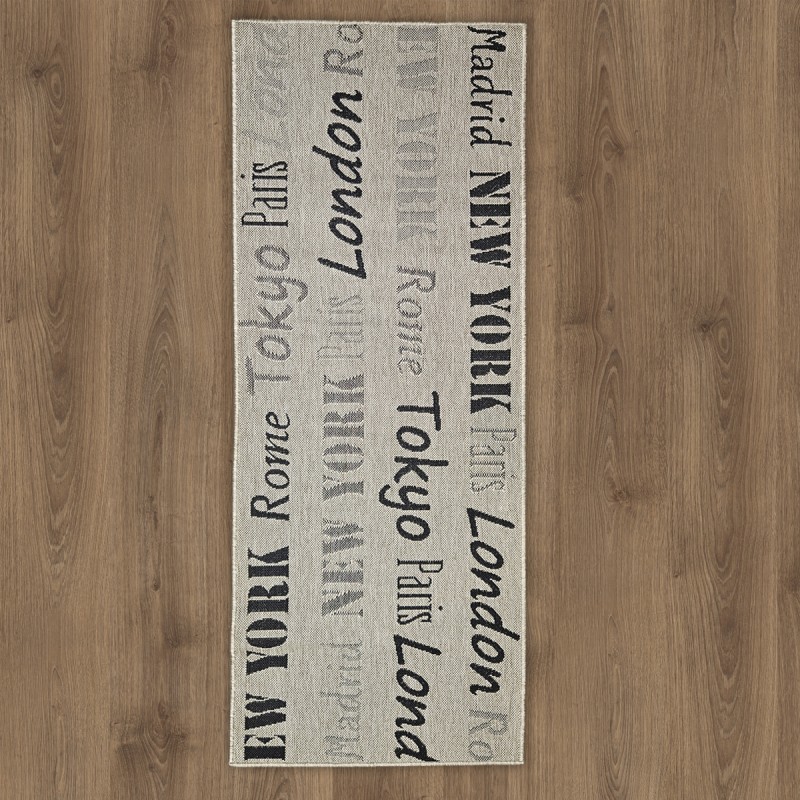 EW YORK Rome Tokyo Paris Lond
Madrid NEW YORK Paris London Ro
EW YORK Rome Tokyo Paris Lond
Madrid NEW YORK Paris London Ro